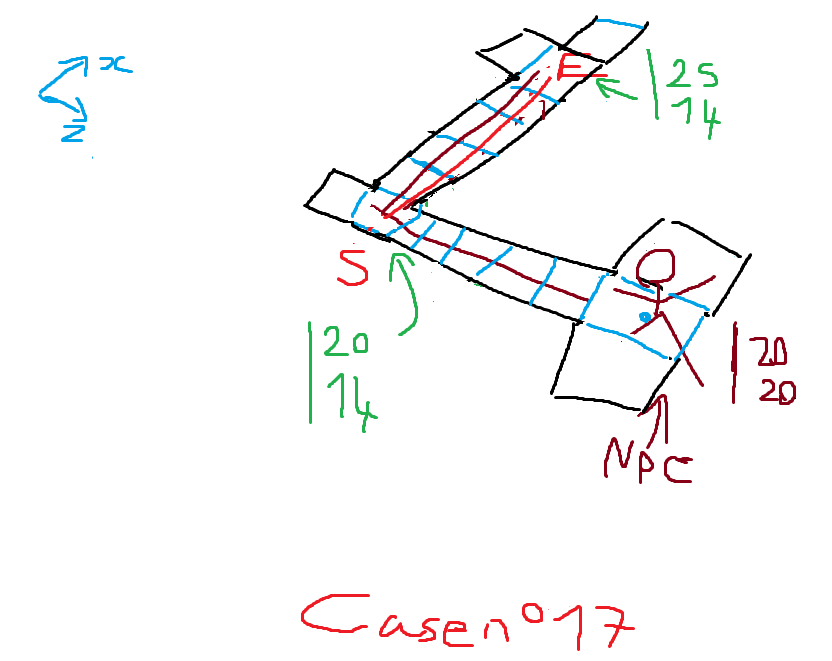 x
z
E
25
14
S
20
14
20
20
NPC
Case n°17